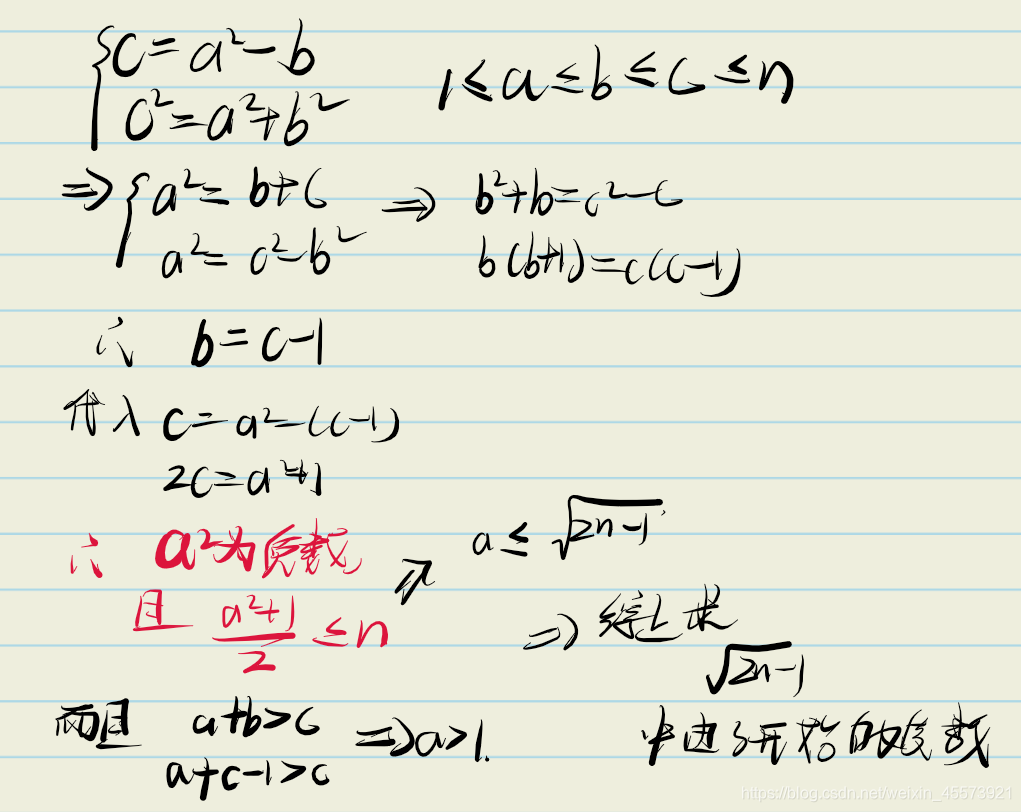 { c = a² - b
c² = a² + b²
1 ≤ a ≤ b ≤ c ≤ n
⇒ { a² = b + c
a² = c² - b²
⇒ b² + b = c² - c
b(b+1) = c(c-1)
∴ b = c - 1
代入 c = a² - (c-1)
2c = a² + 1
∴ a²为奇数
且 (a²+1)/2 ≤ n
⇒ a ≤ √(2n-1)
⇒ 综上求
√(2n-1)
中 3 开始的奇数
而且 a + b > c
a + c - 1 > c
⇒ a > 1.
https://blog.csdn.net/weixin_46573921